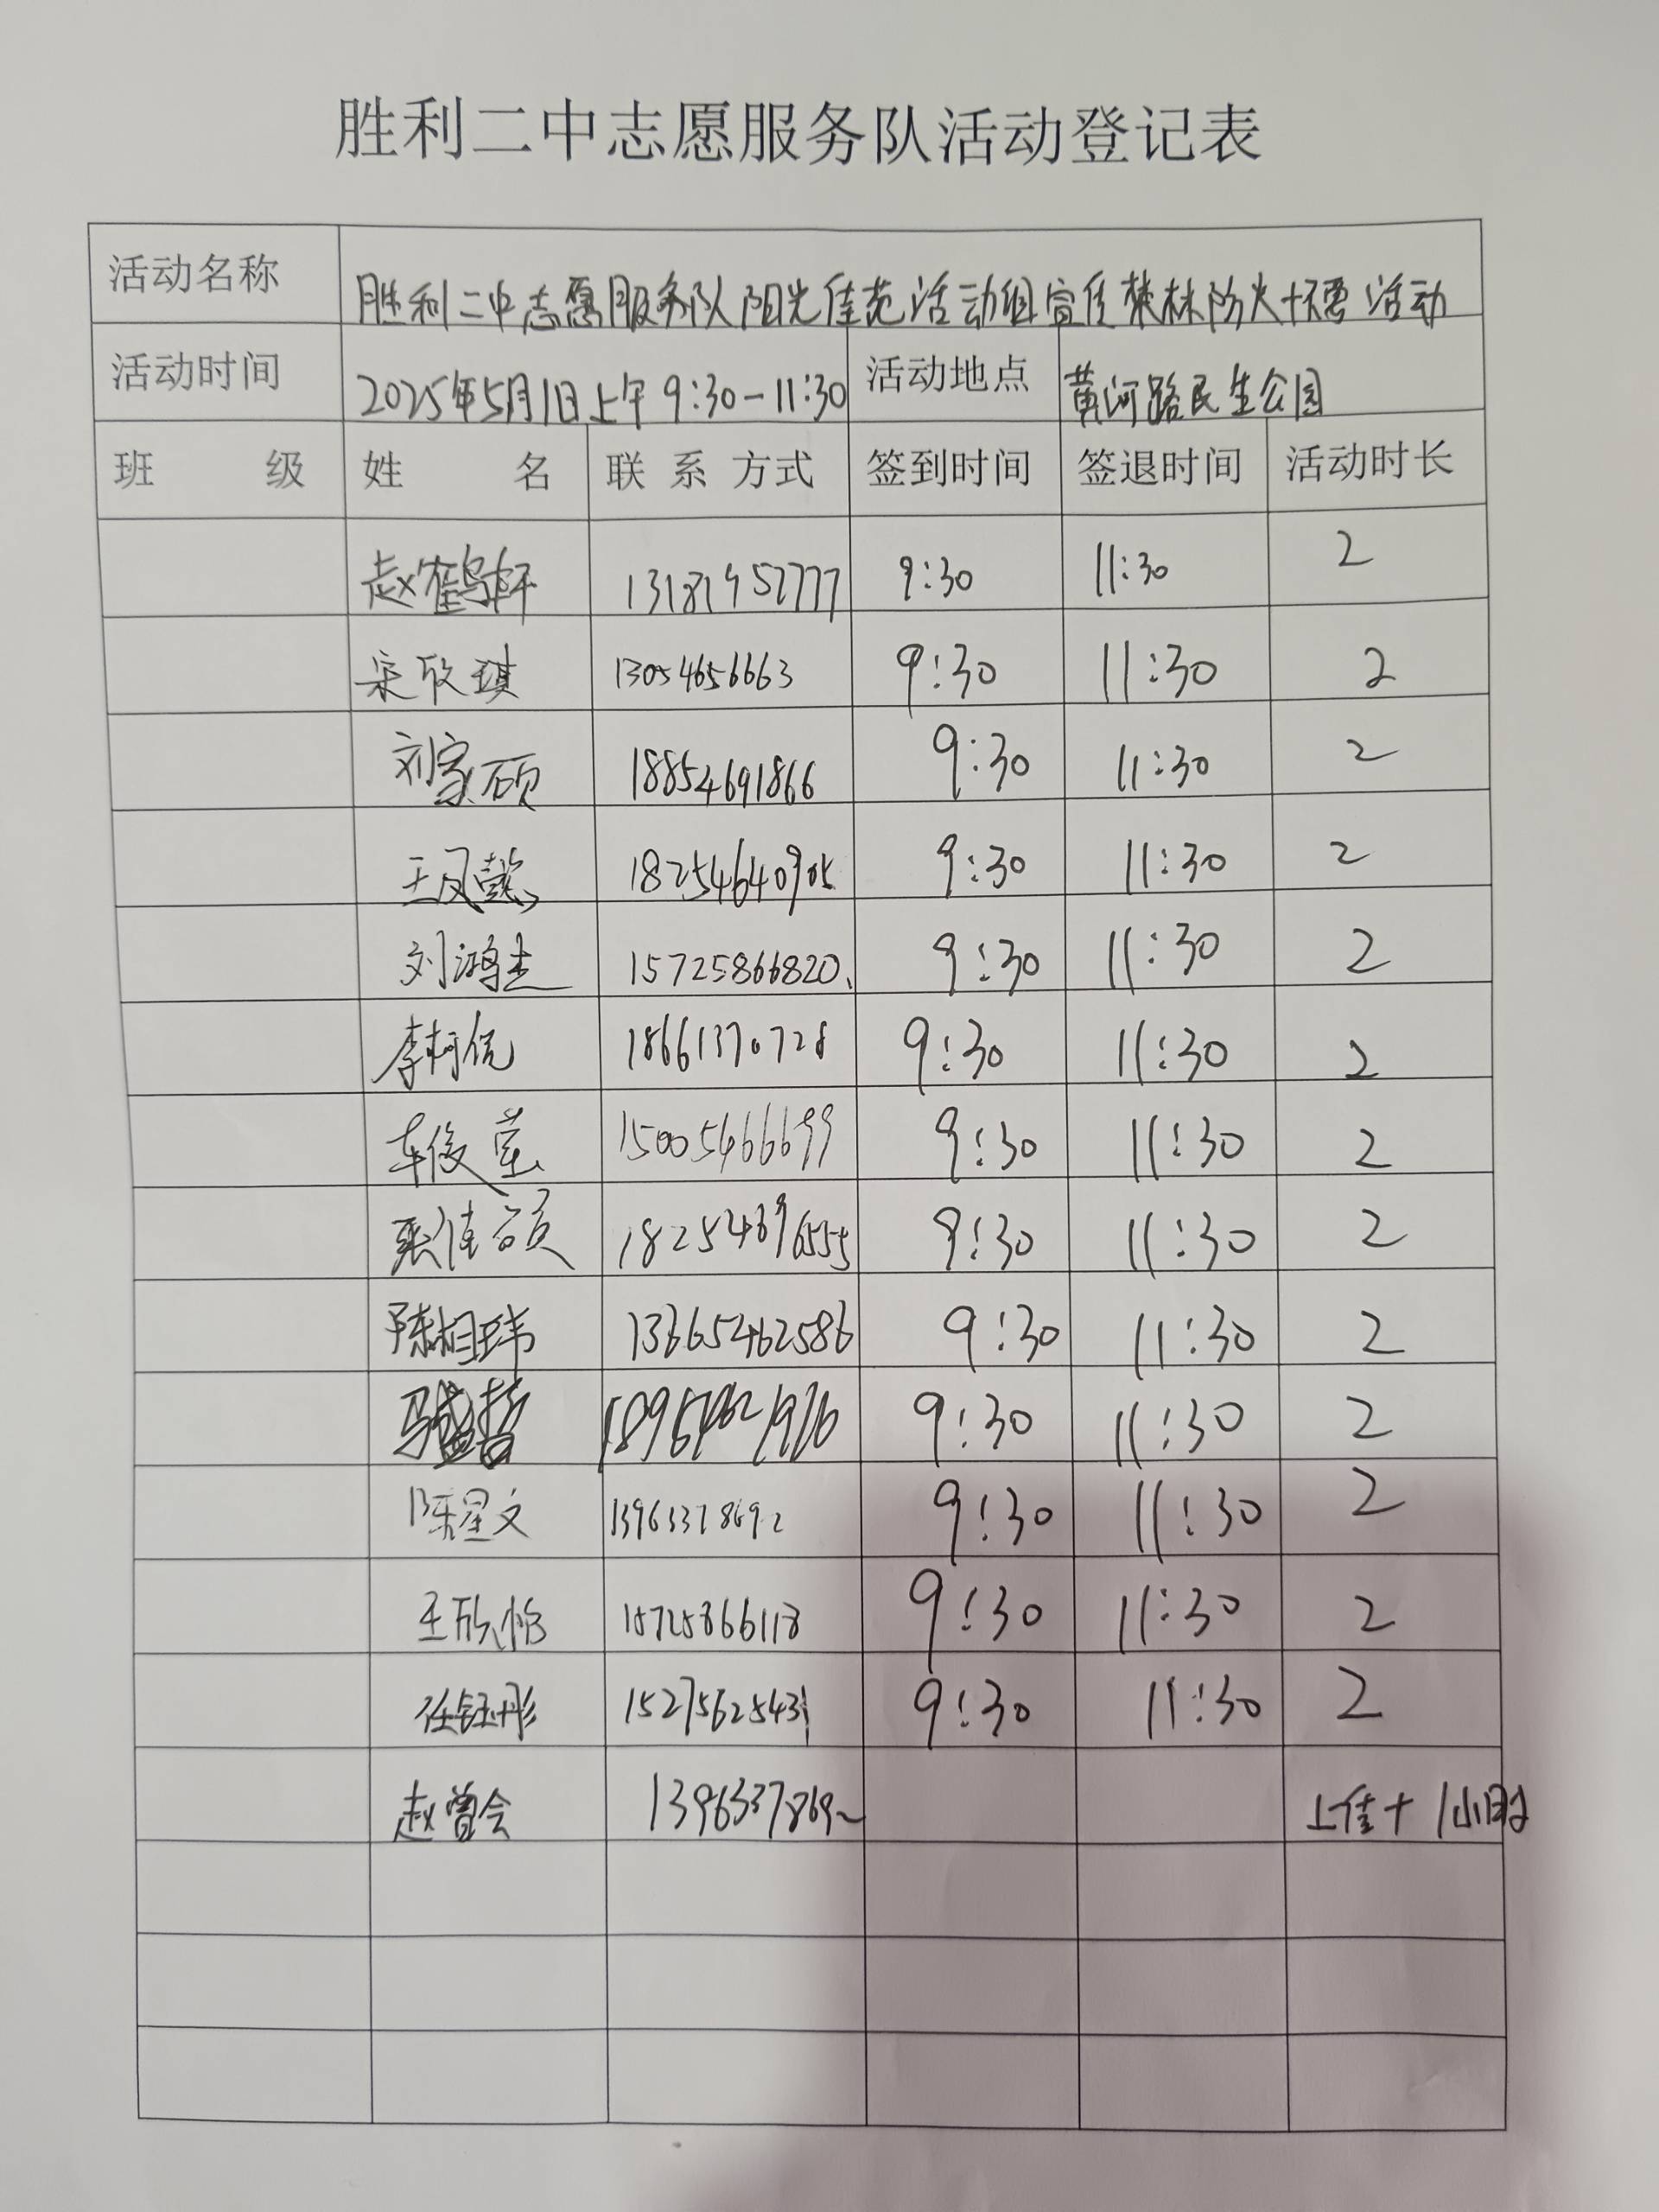 胜利二中志愿服务队活动登记表
活动名称 胜利二中志愿服务队阳光佳苑活动组宣传森林防火十不要活动
活动时间 2025年5月1日上午9:30-11:30 活动地点 黄河路民生公园
班级 姓名 联系方式 签到时间 签退时间 活动时长
赵鹤轩 9:30 11:30 2
宋欣琪 13054656663 9:30 11:30 2
刘家硕 18854691866 9:30 11:30 2
王凤懿 18254640905 9:30 11:30 2
刘鸿杰 15725866820、 9:30 11:30 2
李柯侃 18661370728 9:30 11:30 2
车俊莹 15005466699 9:30 11:30 2
张佳硕 9:30 11:30 2
陈相玮 13665462586 9:30 11:30 2
马盛哲 9:30 11:30 2
陈星文 13963378692 9:30 11:30 2
王欣怡 15725866118 9:30 11:30 2
任钰彤 15275625431 9:30 11:30 2
赵曾会 13963378692 上传+1小时